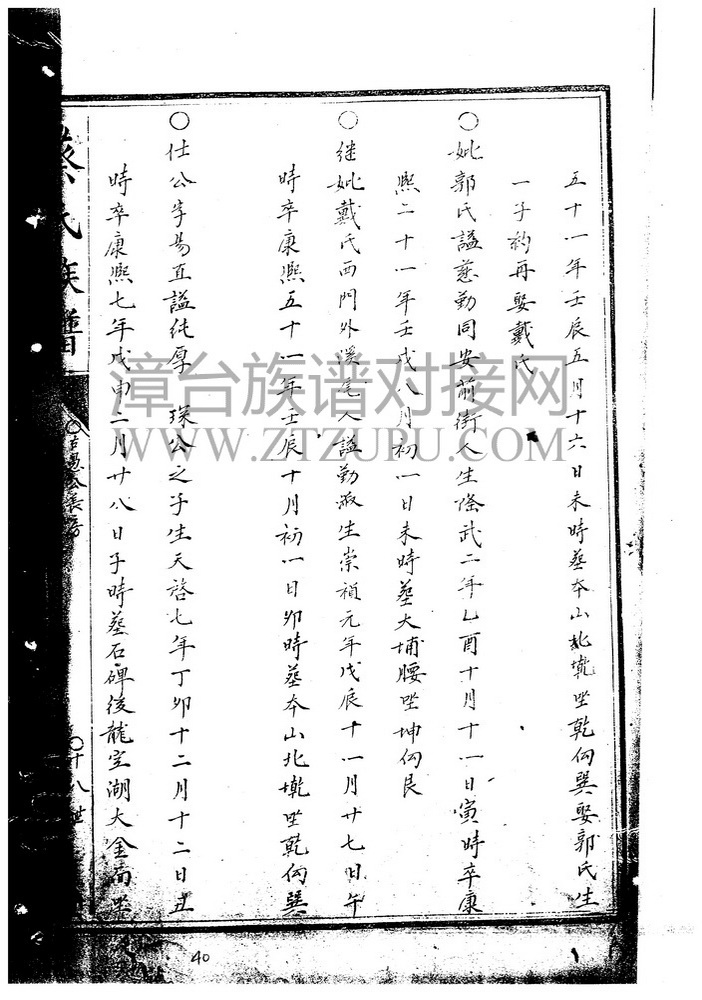 五十一年壬辰五月十六日未時葬本山北墘坐乾向巽娶郭氏生
一子約再娶戴氏
〇妣郭氏謚慈勤同安前街人生隆武二年乙酉十月十一日寅時卒康
熙二十一年壬戌八月初一日未時葬大埔腰坐坤向艮
〇继妣戴氏西門外溪尾人謚勤淑生崇禎元年戊辰十一月廿七日午
時卒康熙五十一年壬辰十月初一日卯時葬本山北墘坐乾向巽
〇仕公字易直謚純厚 珠公之子生天啓七年丁卯十二月十二日丑
時卒康熙七年戊申二月廿八日子時葬石碑後龍空湖大金面坐
蔡氏族譜
公長房
〇十八世
40
漳台族谱对接网
WWW.ZTZUPU.COM